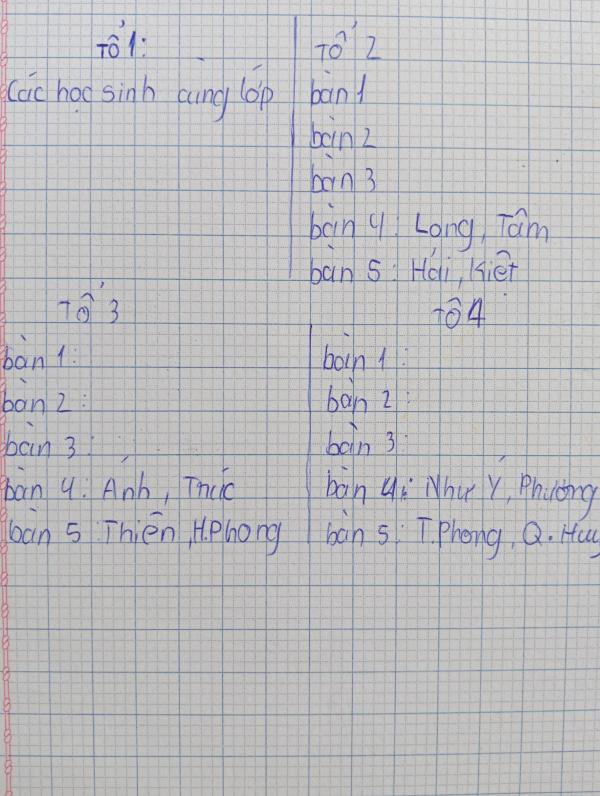 Tổ 1:
Các học sinh cùng lớp
Tổ 2
bàn 1
bàn 2
bàn 3
bàn 4: Long, Tâm
bàn 5: Hải, Kiệt
Tổ 3
bàn 1:
bàn 2:
bàn 3:
bàn 4: Ánh, Thức
bàn 5 Thiên, H.Phong
Tổ 4
bàn 1:
bàn 2:
bàn 3:
bàn 4: Như Ý, Phương
bàn 5: T.Phong, Q.Huy